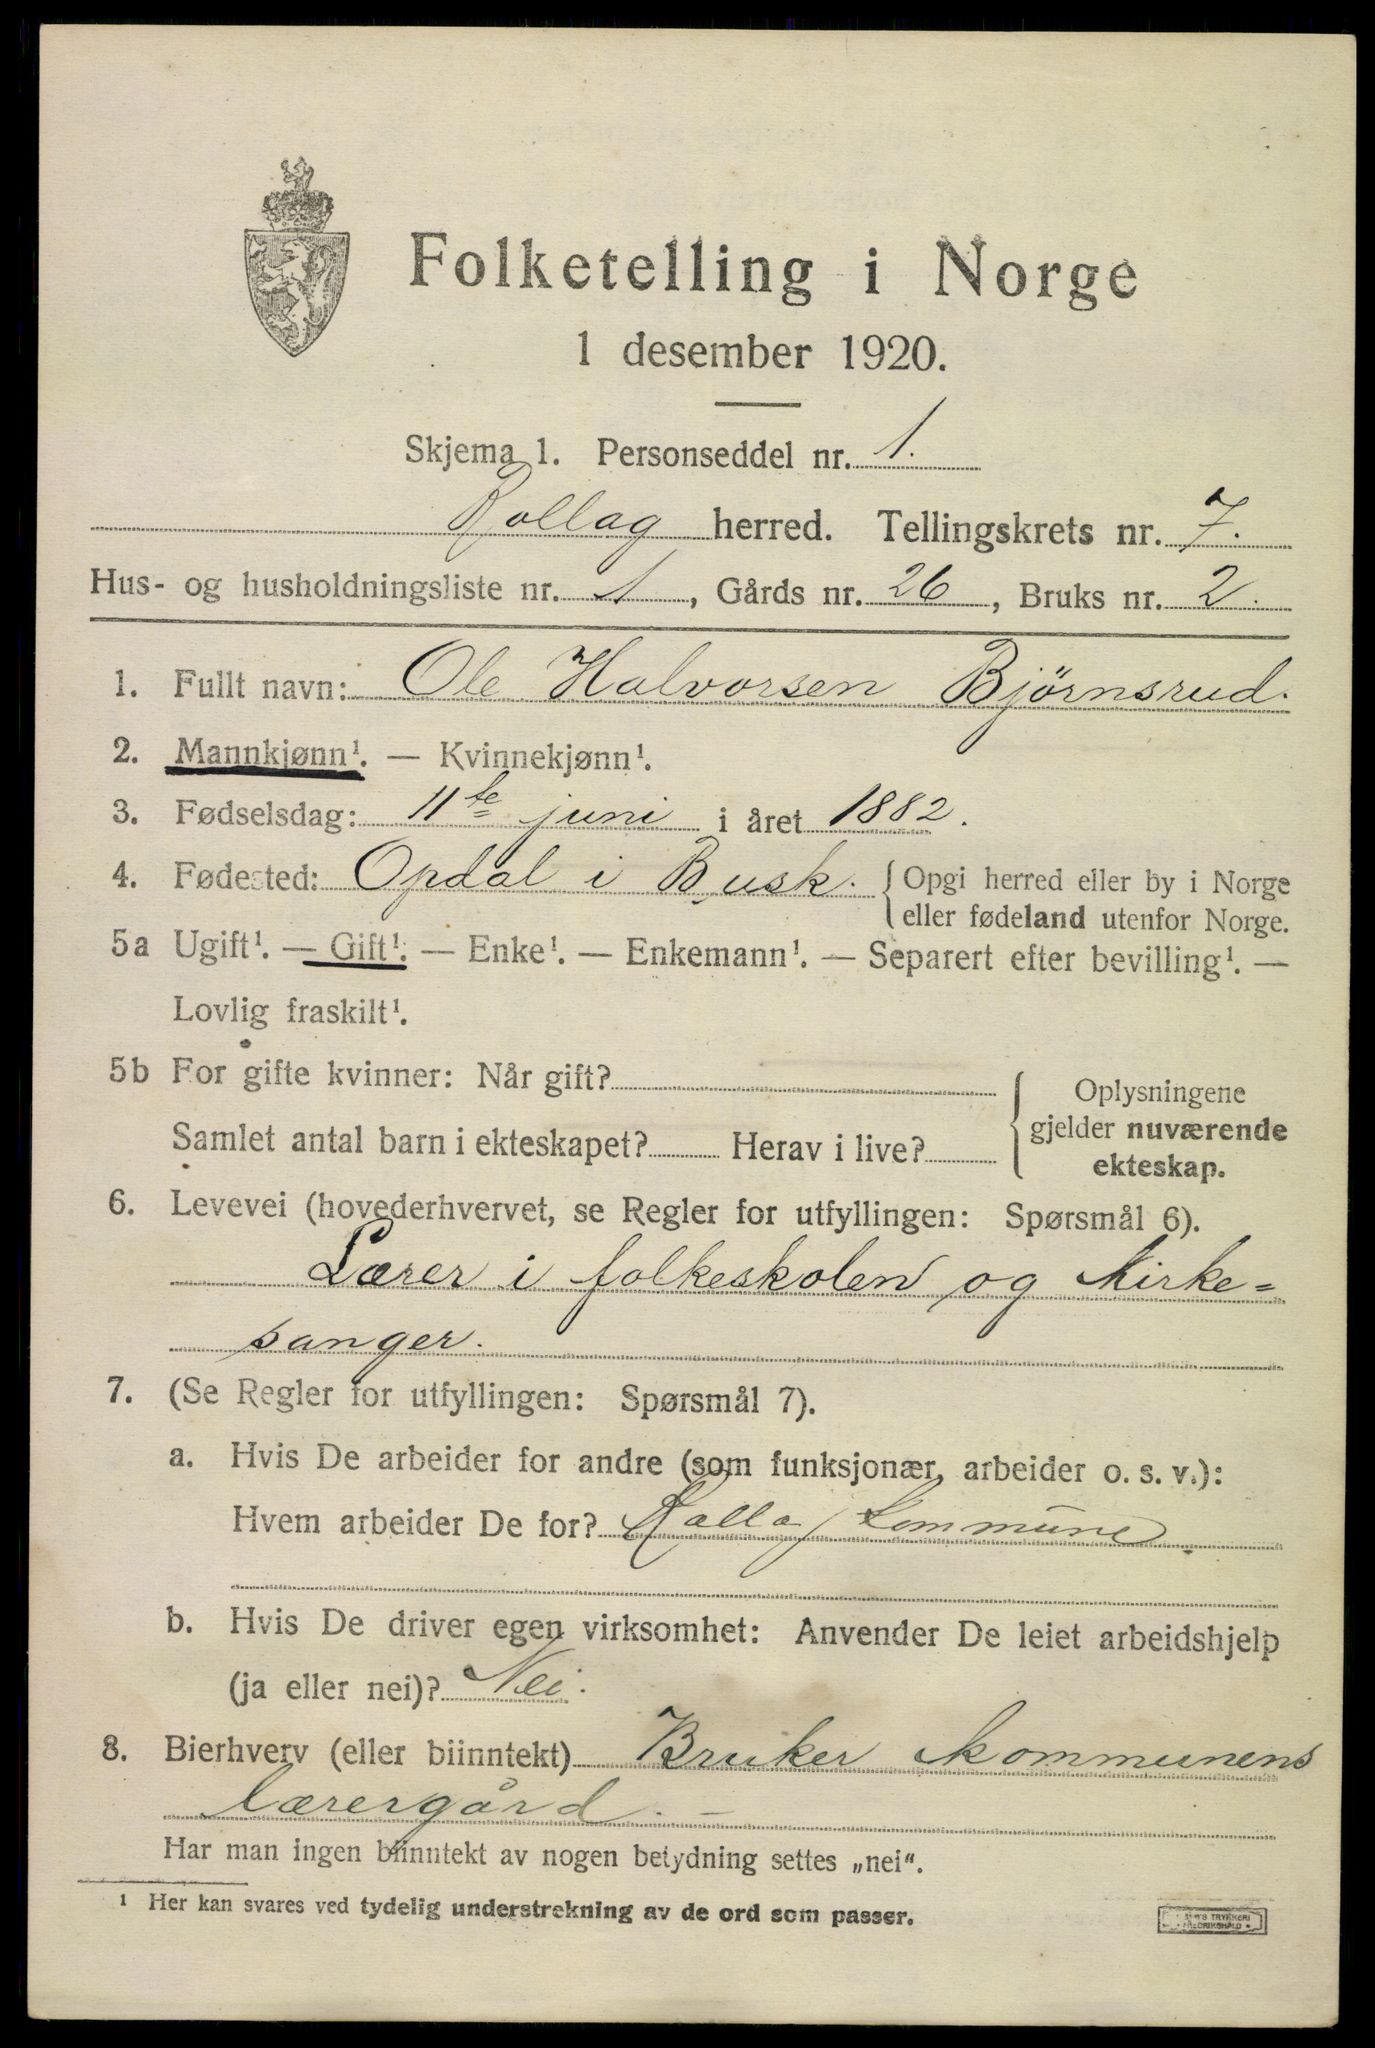 Folketelling i Norge
1 desember 1920.
Skjema 1. Personseddel nr. 1.
Rollag herred. Tellingskrets nr. 7.
Hus- og husholdningsliste nr. 1, Gårds nr. 26, Bruks nr. 2.
1. Fullt navn: Ole Halvorsen Bjørnsrud.
2. Mannkjønn¹. — Kvinnekjønn¹.
3. Fødselsdag: 11te juni i året 1882.
4. Fødested: Opdal i Busk. { Opgi herred eller by i Norge
eller fødeland utenfor Norge.
5a Ugift¹. — Gift¹. — Enke¹. — Enkemann¹. — Separert efter bevilling¹. —
Lovlig fraskilt¹.
5b For gifte kvinner: Når gift? { Oplysningene
gjelder nuværende
ekteskap.
Samlet antal barn i ekteskapet? Herav i live?
6. Levevei (hovederhvervet, se Regler for utfyllingen: Spørsmål 6).
Lærer i folkeskolen og kirke=
sanger.
7. (Se Regler for utfyllingen: Spørsmål 7).
a. Hvis De arbeider for andre (som funksjonær, arbeider o. s. v.):
Hvem arbeider De for? Rollag kommune
b. Hvis De driver egen virksomhet: Anvender De leiet arbeidshjelp
(ja eller nei)? Nei.
8. Bierhverv (eller biinntekt) Bruker kommunens
lærergård. –
Har man ingen biinntekt av nogen betydning settes „nei“.
¹ Her kan svares ved tydelig understrekning av de ord som passer.
TRYKKERI
FREDRIKSHALD